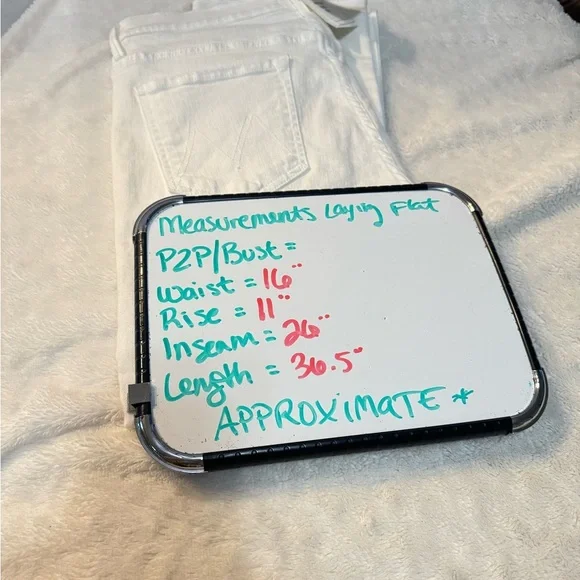 Measurements Laying Flat
P2P/Bust =
Waist = 16"
Rise = 11"
Inseam = 26"
Length = 36.5"
APPROXIMATE *